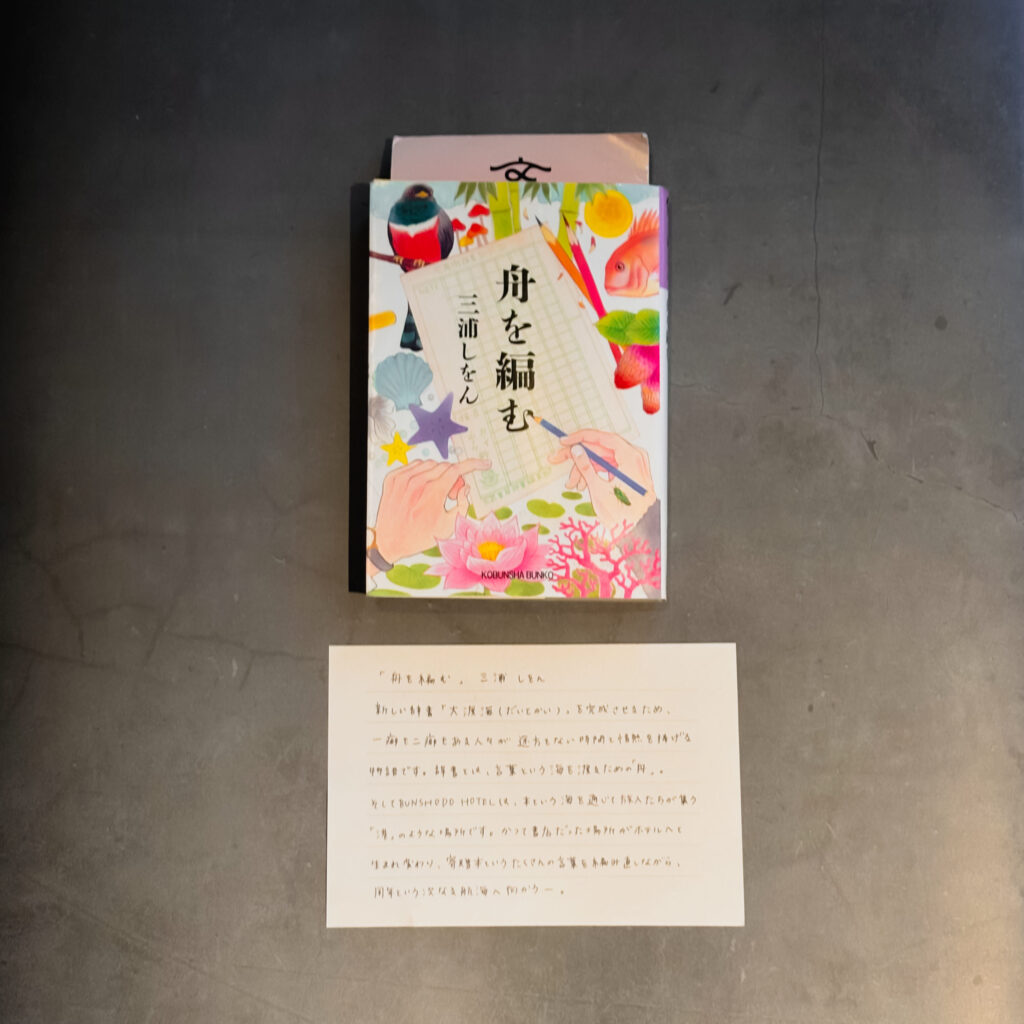 舟を編む
三浦しをん
KOBUNSHA BUNKO
「舟を編む」 三浦 しをん
新しい辞書「大渡海(だいとかい)」を完成させるため、
一癖も二癖もある人々が 途方もない時間と情熱を捧げる
物語です。辞書とは、言葉という海を渡るための「舟」。
そしてBUNSHODO HOTELは、本という海を通じて旅人たちが集う
「港」のような場所です。かつて書店だった場所がホテルへと
生まれ変わり、寄贈本というたくさんの言葉を編み直しながら、
周年という次なる航海へ向かう―。